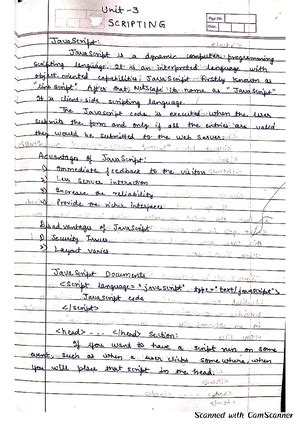 Unit-3
SCRIPTING
Page No.
Date
JavaScript:
JavaScript is a dynamic computer programming
scripting language. It is an interpreted language with
object-oriented capabilities. JavaScript firstly known as
"live script" After that Netscape its name as "JavaScript"
It a client-side scripting language.
The JavaScript code is executed when the user
submits the form and only if all the entries are valid
they would be submitted to the web server.
Advantages of JavaScript
1) Immediate feedback to the visitors
2) Less server interaction
3) Increase the reliability
4) Provide the richer interfaces
Disadvantages of JavaScript
1) Security Issues
2) Layout varies
JavaScript Documents
<script language="javascript" type="text/javascript">
JavaScript code
</script>
<head> ... </head> Section:
If you want to have a script run on some
event, such as when a user clicks somewhere, when
you will place that script in the head.
Scanned with CamScanner